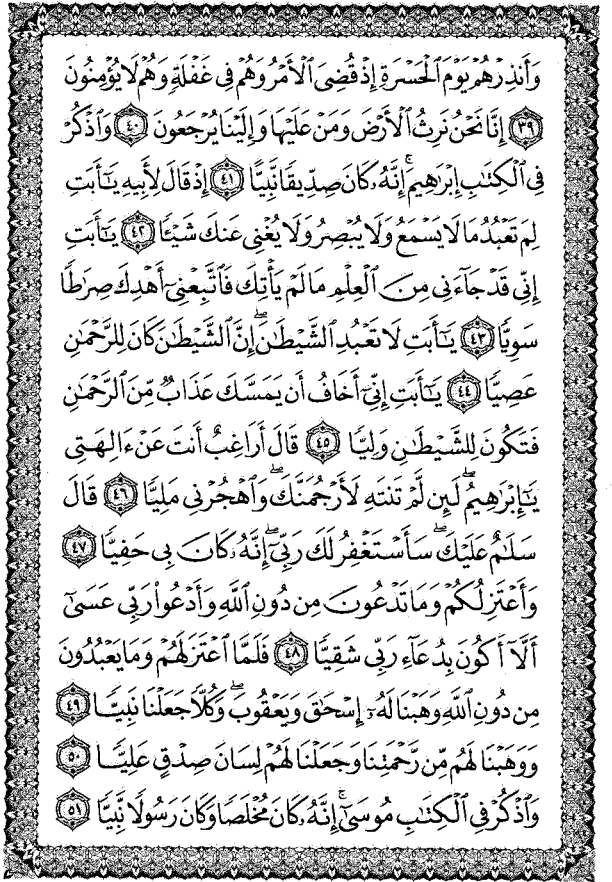 وَأَنذِرْهُمْ يَوْمَ الْحَسْرَةِ إِذْ قُضِيَ الْأَمْرُ وَهُمْ فِي غَفْلَةٍ وَهُمْ لَا يُؤْمِنُونَ
﴿٣٩﴾ إِنَّا نَحْنُ نَرِثُ الْأَرْضَ وَمَنْ عَلَيْهَا وَإِلَيْنَا يُرْجَعُونَ ﴿٤٠﴾ وَاذْكُرْ
فِي الْكِتَابِ إِبْرَاهِيمَ ۚ إِنَّهُ كَانَ صِدِّيقًا نَّبِيًّا ﴿٤١﴾ إِذْ قَالَ لِأَبِيهِ يَا أَبَتِ
لِمَ تَعْبُدُ مَا لَا يَسْمَعُ وَلَا يُبْصِرُ وَلَا يُغْنِي عَنكَ شَيْئًا ﴿٤٢﴾ يَا أَبَتِ
إِنِّي قَدْ جَاءَنِي مِنَ الْعِلْمِ مَا لَمْ يَأْتِكَ فَاتَّبِعْنِي أَهْدِكَ صِرَاطًا
سَوِيًّا ﴿٤٣﴾ يَا أَبَتِ لَا تَعْبُدِ الشَّيْطَانَ ۖ إِنَّ الشَّيْطَانَ كَانَ لِلرَّحْمَٰنِ
عَصِيًّا ﴿٤٤﴾ يَا أَبَتِ إِنِّي أَخَافُ أَن يَمَسَّكَ عَذَابٌ مِّنَ الرَّحْمَٰنِ
فَتَكُونَ لِلشَّيْطَانِ وَلِيًّا ﴿٤٥﴾ قَالَ أَرَاغِبٌ أَنتَ عَنْ آلِهَتِي
يَا إِبْرَاهِيمُ ۖ لَئِن لَّمْ تَنتَهِ لَأَرْجُمَنَّكَ ۖ وَاهْجُرْنِي مَلِيًّا ﴿٤٦﴾ قَالَ
سَلَامٌ عَلَيْكَ ۖ سَأَسْتَغْفِرُ لَكَ رَبِّي ۖ إِنَّهُ كَانَ بِي حَفِيًّا ﴿٤٧﴾
وَأَعْتَزِلُكُمْ وَمَا تَدْعُونَ مِن دُونِ اللَّهِ وَأَدْعُو رَبِّي عَسَىٰ
أَلَّا أَكُونَ بِدُعَاءِ رَبِّي شَقِيًّا ﴿٤٨﴾ فَلَمَّا اعْتَزَلَهُمْ وَمَا يَعْبُدُونَ
مِن دُونِ اللَّهِ وَهَبْنَا لَهُ إِسْحَاقَ وَيَعْقُوبَ ۖ وَكُلًّا جَعَلْنَا نَبِيًّا ﴿٤٩﴾
وَوَهَبْنَا لَهُم مِّن رَّحْمَتِنَا وَجَعَلْنَا لَهُمْ لِسَانَ صِدْقٍ عَلِيًّا ﴿٥٠﴾
وَاذْكُرْ فِي الْكِتَابِ مُوسَىٰ ۚ إِنَّهُ كَانَ مُخْلَصًا وَكَانَ رَسُولًا نَّبِيًّا ﴿٥١﴾